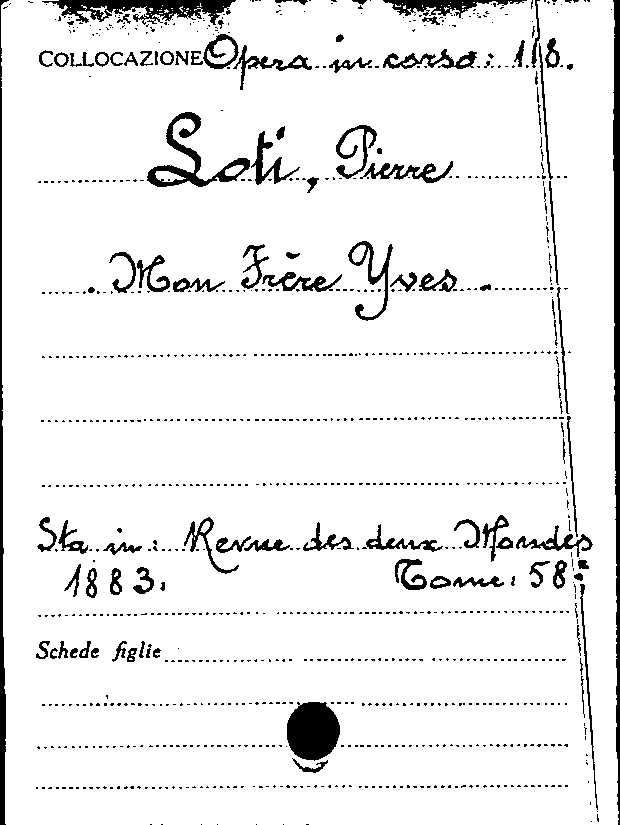 COLLOCAZIONE Opera in corso: 118.
Loti, Pierre
. Mon Frère Yves .
Sta in: Revue des deux Mondes
1883. Tome: 58:
Schede figlie